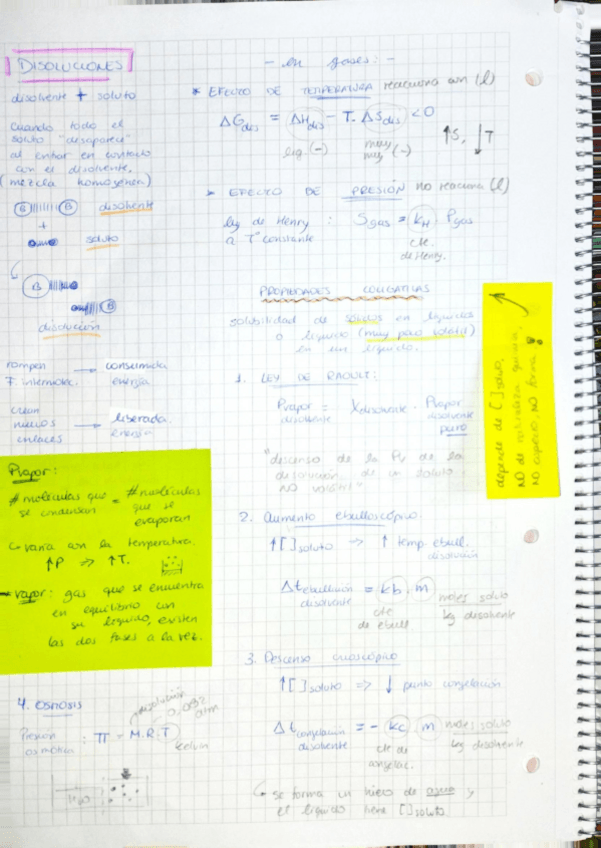 DISOLUCIONES
disolvente + soluto
Cuando todo el
soluto "desaparece"
al entrar en contacto
con el disolvente.
(mezcla homogénea)
B B disolvente
+
soluto
B
B
disolución
rompen → consumida
F. intermolec. energía
crean
nuevos → liberada.
enlaces energía
Pvapor:
# moléculas que = # moléculas
se condensan que se
evaporan
↳ varía con la temperatura.
↑P ⇒ ↑T.
vapor: gas que se encuentra
en equilibrio con
su líquido, existen
las dos fases a la vez.
4. OSMOSIS
disolución
0,082
atm
Presión : π = M.R.T
osmótica kelvin
H2O
- en gases: -
* EFECTO DE TEMPERATURA reacciona con (l)
ΔGdis = ΔHdis - T. ΔSdis < 0
(-) muy
muy (-)
↑S, ↓T
* EFECTO DE PRESIÓN no reacciona (l)
ley de Henry : Sgas = kH Pgas
a Tª constante cte.
de Henry.
PROPIEDADES COLIGATIVAS
solubilidad de sólidos en líquidos
o líquido (muy poco volátil)
en un líquido.
depende de [ ] soluto,
NO de naturaleza química,
NO especie, NO forma
1. LEY DE RAOULT:
Pvapor = Xdisolvente . Pvapor
disolvente disolvente
puro
"descenso de la Pv de la
disolución de un soluto
NO volátil"
2. Aumento ebulloscópico.
↑[ ] soluto ⇒ ↑ temp ebull.
disolución
Δt ebullición = kb . m moles soluto
disolvente kg disolvente
cte
de ebull.
3. Descenso crioscópico
↑[ ] soluto ⇒ ↓ punto congelación
Δt congelación = - kc . m moles soluto
disolvente kg disolvente
cte de
congelac.
↳ se forma un hielo de agua y
el líquido tiene [ ] soluto